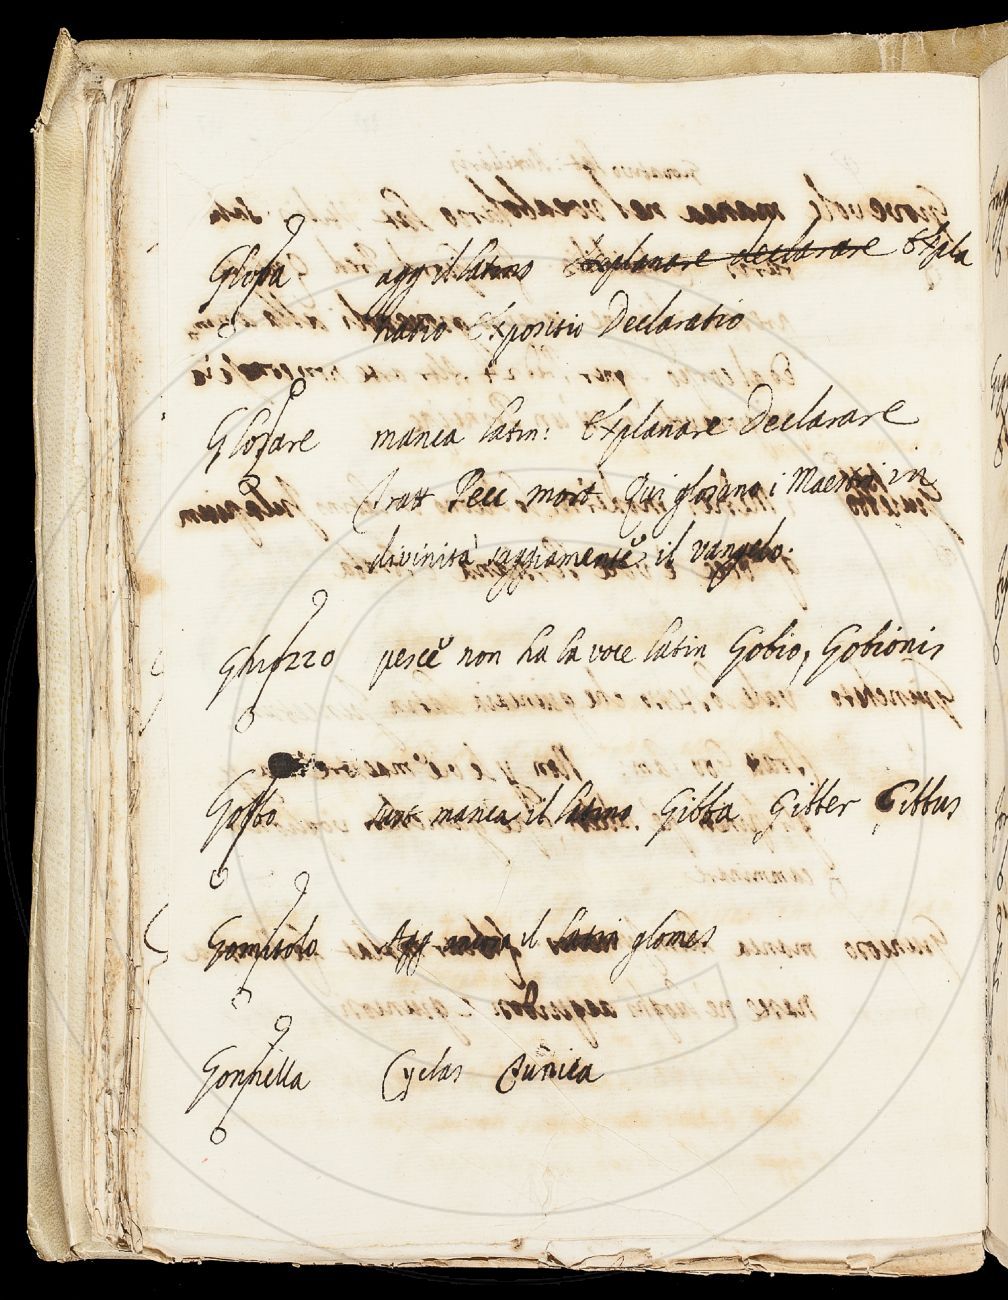 Glosa agg il latino Explanare declarare Expla
natio Expositio Declaratio
Glosare manca latin: Explanare Declarare
Tratt Pecc mort. Qui glosano i Maestri in
divinità saggiamente il vangelo.
Ghiozzo pesce non ha la voce latin Gobio, Gobionis
Gobbo manca il latino Gibba Gibber Gibbus
Gomitolo Agg il latin glomes
Gonnella Cyclas Tunica